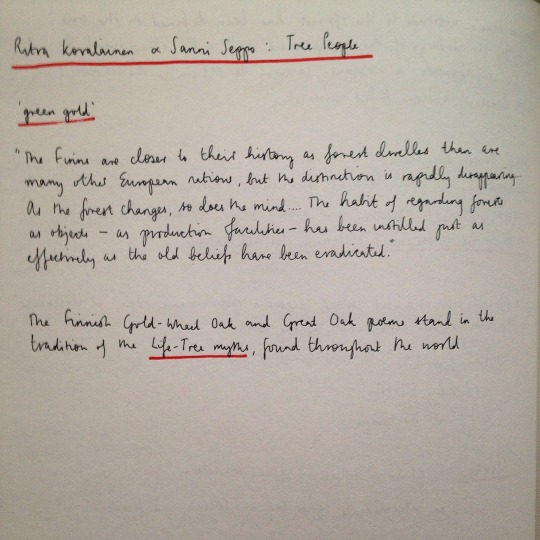 Ritva Kovalainen & Sanni Seppo : Tree People
'green gold'
"The Finns are closer to their history as forest dwellers than are
many other European nations, but the distinction is rapidly disappearing.
As the forest changes, so does the mind.... The habit of regarding forests
as objects – as production facilities – has been instilled just as
effectively as the old beliefs have been eradicated."
The Finnish Gold-Wheel Oak and Great Oak poems stand in the
tradition of the Life-Tree myths, found throughout the world